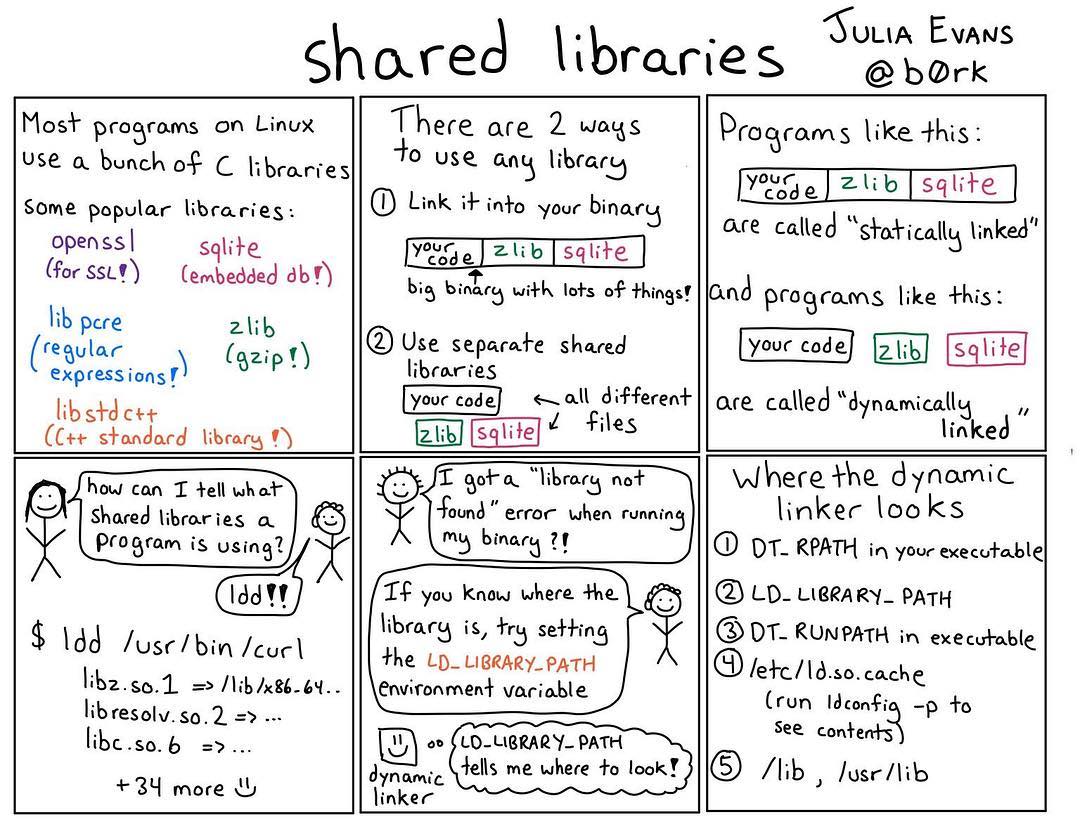 shared libraries
JULIA EVANS
@b0rk
Most programs on Linux
use a bunch of C libraries
some popular libraries:
openssl
(for SSL!)
sqlite
(embedded db!)
lib pcre
(regular
expressions!)
zlib
(gzip!)
libstdc++
(C++ standard library!)
There are 2 ways
to use any library
① Link it into your binary
your
code
zlib
sqlite
big binary with lots of things!
② Use separate shared
libraries
your code
all different
files
zlib
sqlite
Programs like this:
your
code
zlib
sqlite
are called "statically linked"
and programs like this:
your code
zlib
sqlite
are called "dynamically
linked"
how can I tell what
shared libraries a
program is using?
ldd!!
$ ldd /usr/bin/curl
libz.so.1 => /lib/x86-64..
libresolv.so.2 => ...
libc.so.6 => ...
+34 more
I got a "library not
found" error when running
my binary?!
If you know where the
library is, try setting
the LD_LIBRARY_PATH
environment variable
dynamic
linker
LD_LIBRARY_PATH
tells me where to look!
Where the dynamic
linker looks
① DT_RPATH in your executable
② LD_LIBRARY_PATH
③ DT_RUNPATH in executable
④ /etc/ld.so.cache
(run ldconfig -p to
see contents)
⑤ /lib, /usr/lib